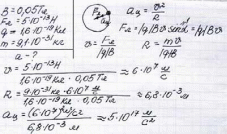 B = 0,05Тл
Fл = 5·10⁻¹³Н
q = 1,6·10⁻¹⁹Кл
m = 9,1·10⁻³¹кг
a - ?
Fл
aц
aц = υ²/R
Fл = |q|Bυ sinα = |q|Bυ
υ = Fл/|q|B
R = mυ/|q|B
υ = 5·10⁻¹³Н/1,6·10⁻¹⁹Кл·0,05Тл ≈ 6·10⁷ м/с
R = 9·10⁻³¹кг·6·10⁷м/с/1,6·10⁻¹⁹Кл·0,05Тл ≈ 6,8·10⁻³м
aц = (6·10⁷м/с)²/6,8·10⁻³м ≈ 5·10¹⁷ м/с²